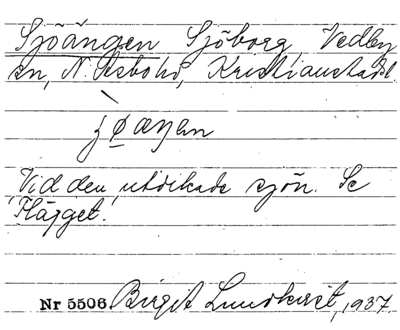 Sjöängen Sjöborg, Vedby
sn, N. Åsbohd, Kristianstads l
Vid den utdikade sjön. Se
Flägget.
Nr 5506 Birgit Lundkvist, 1937